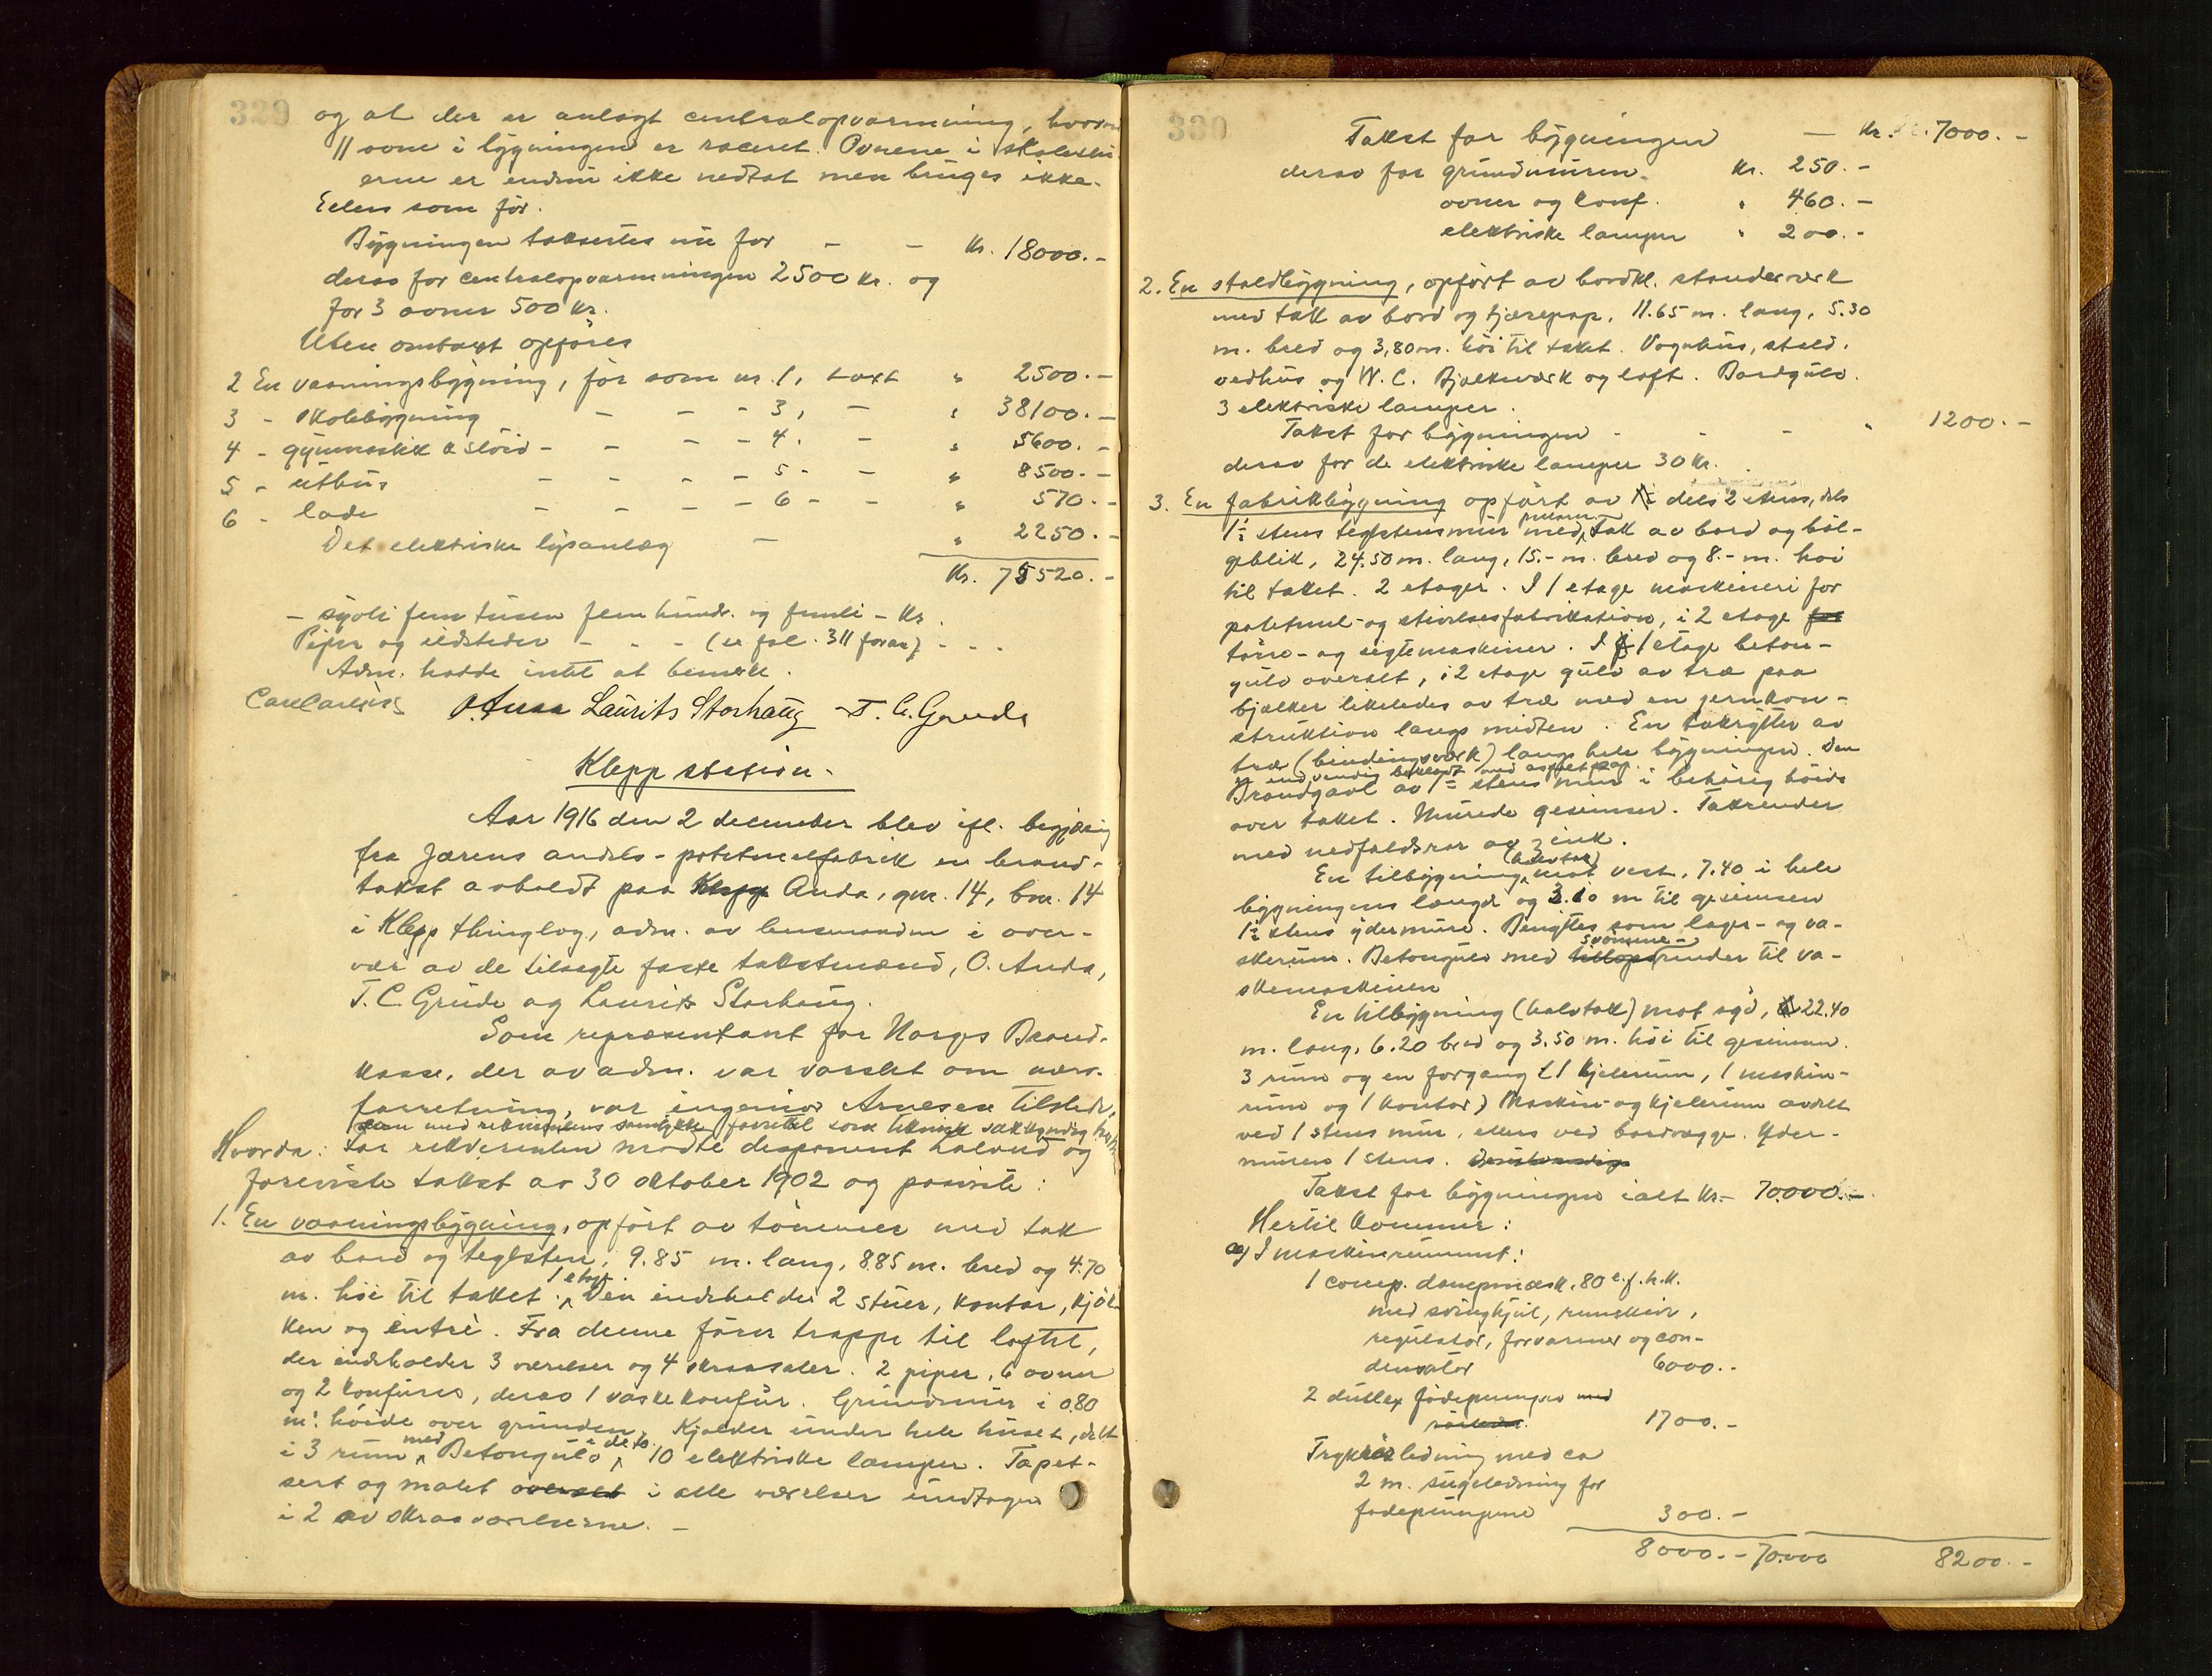 329
og at der er anlagt centralopvarmning, hvorav
11 ovne i bygningen er raceret. Ovnene i skolestu-
erne er endnu ikke nedtat men bruges ikke.
Ellers som før.
Bygningen taksertes nu for – – Kr. 18000.–
derav for centralopvarmningen 2500 kr. og
for 3 ovner 500 kr.
Uten omtaxt opføres
2 En vaaningsbygning, før som nr. 1, taxt " 2500.–
3 - skolebygning – – - 3, – " 38100.–
4 - gymnastikk & sløid – – – - 4. – " 5600.–
5 - uthus – – – - 5 - – " 8500.–
6 - lade – – – - 6 - – " 570.–
Det elektriske lysanlæg – " 2250.–
Kr. 75520.–
– sytti fem tusen fem hundr. og femti – Kr.
Piper og ildsteder – – – (se fol. 311 foran) – – –
Adm. hadde intet at bemerke.
O. Anda Laurits Storhaug T. C. Grude
Klepp station.
Aar 1916 den 2 december blev ifl. begjæring
fra Jærens andels-potetmelfabrik en brand-
takst avholdt paa Klepp Anda, gnr. 14, bnr. 14
i Klepp thinglag, adm. av lensmanden i over-
vær av de tilsagte faste takstmænd, O. Anda,
T. C. Grude og Laurits Storhaug.
Som repræsentant for Norges Brand-
kasse, der av adm. var varslet om nærv.
forretning, var ingeniør Arnesen tilstede,
som med rekvirentens samtykke forrettet som teknisk sakkyndig
Hvorda: For rekvirenten møtte disponent Haland og
foreviste takst av 30 oktober 1902 og paaviste:
1. En vaaningsbygning, opført av tømmer med tak
av bord og teglsten, 9.85 m. lang, 8.85 m. bred og 4.70
m. høi til taket. 1 etage Den indeholder 2 stuer, kontor, kjøk-
ken og entrè. Fra denne fører trappe til loftet,
der indeholder 3 værelser og 4 skraasaler. 2 piper, 6 ovner
og 2 komfurer, derav 1 vaskekomfur. Grundmur i 0.80
m. høide over grunden. Kjelder under hele huset, delt
i 3 rum med Betongulv i dets. 10 elektriske lamper. Tapet-
sert og malet overalt i alle værelser undtagen
i 2 av skraaværelserne. –
330
Takst for bygningen – Kr. 7000.–
derav for grundmuren. Kr. 250.–
ovner og komf. " 460.–
elektriske lamper " 200.–
2. En staldbygning, opført av bordkl. stenderverk
med tak av bord og tjærepap. 11.65 m. lang, 5.30
m. bred og 3,80 m. høi til taket. Vognhus, stald,
vedhus og W.C. Bjelkeværk og loft. Bordgulv.
3 elektriske lamper.
Takst for bygningen – – – " 1200.–
derav for de elektriske lamper 30 kr.
3. En fabrikbygning opført av dels 2 etens, dels
1½ stens teglstensmur med tak av bord og bøl-
geblik, 24.50 m. lang, 15.– m. bred og 8.– m. høi
til taket. 2 etager. I 1 etage maskineri for
potetmel- og stivelsesfabrikation, i 2 etage for
tørre- og sigtemaskiner. I 1 etage beton-
gulv overalt, i 2 etage gulv av træ paa
bjælker likeledes av træ med en jernkon-
struktion langs midten. En takrytter av
træ (bindingsverk) langs hele bygningen. Den
er indvendig beklædt med asfaltpap.
Brandgavl av 1½ stens mur i behørig høide
over taket. Murede gesimser. Takrender
med nedfaldsrør av zink.
En tilbygning (halvtak) mot vest, 7.40 i hele
bygningens længde og 3.10 m til gesimsen
1½ stens ydermure. Benyttes som lager- og va-
skerum. Betongulv med tilløps svømme-render til va-
skemaskinen
En tilbygning (halvtak) mot syd, 22.40
m. lang, 6.20 bred og 3.50 m. høi til gesimsen.
3 rum og en forgang (1 kjelerum, 1 maskin-
rum og 1 kontor) Maskin- og kjelerum avdelt
ved 1 stens mur, ellers ved bordvægge. Yder-
muren 1 stens.
Takst for bygningen ialt Kr. – 70.000.–
Hertil kommer:
a) I maskinrummet:
1 comp. dampmask. 80 e.f.h.k.
med svinghjul, remskive,
regulator, forvarmer og con-
densator 6000.–
2 duplex fødepumper med
rørledn. 1700.–
Trykrørledning med ca
2 m. sugeledning for
fødepumpene 300.–
8000.– 70.000 8200.–